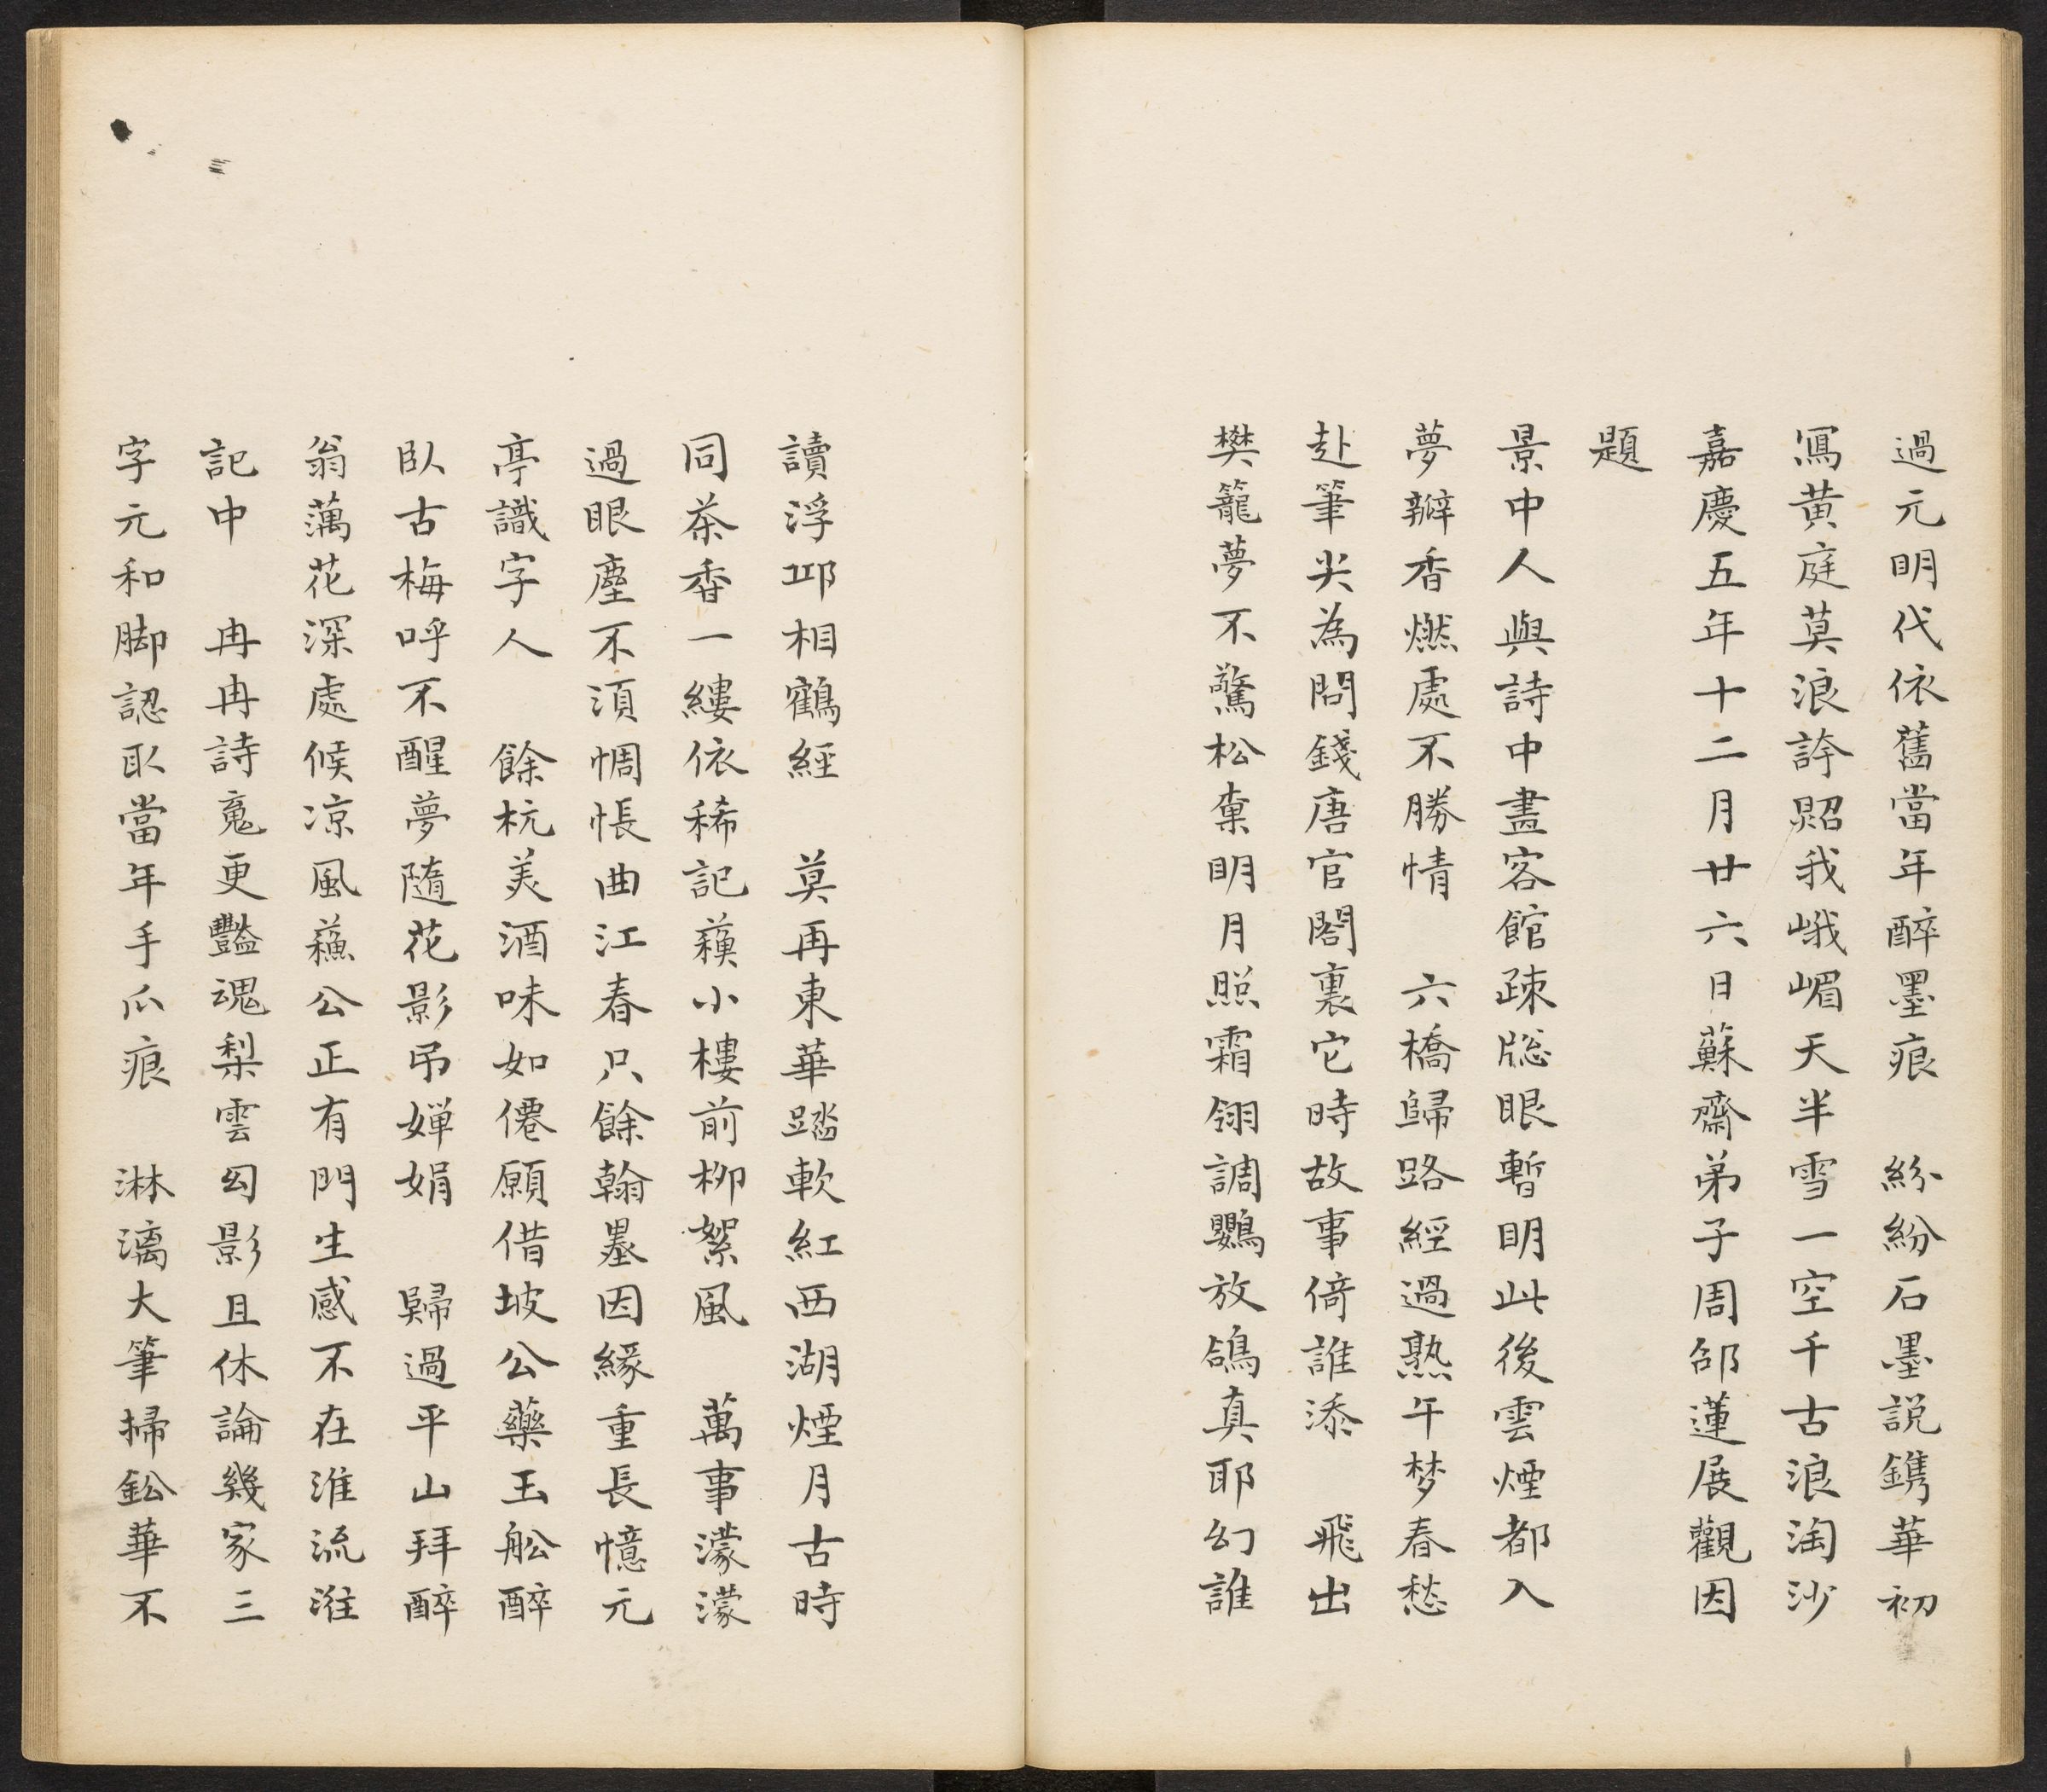 過元明代依舊當年醉墨痕　紛紛石墨說鐫華初
寫黃庭莫浪誇照我峨嵋天半雪一空千古浪淘沙
嘉慶五年十二月廿六日蘇齋弟子周邵蓮展觀因
題
景中人與詩中畫客館疎牎眼暫明此後雲煙都入
夢瓣香燃處不勝情　六橋歸路經過熟午梦春愁
赴筆尖為問錢唐官閣裏它時故事倚誰添　飛出
樊籠夢不驚松棄明月照霜翎調鸚放鴿真耶幻誰
讀浮邱相鶴經　莫再東華踏軟紅西湖煙月古時
同茶香一縷依稀記蘓小樓前柳絮風　萬事濛濛
過眼塵不須惆悵曲江春只餘翰墨因緣重長憶元
亭識字人　餘杭美酒味如僊願借坡公藥玉舩醉
臥古梅呼不醒夢隨花影弔嬋娟　歸過平山拜醉
翁藕花深處候凉風蘓公正有門生感不在淮流滙
記中　冉冉詩寃更豔魂梨雲匈影且休論幾家三
字元和脚認取當年手爪痕　淋漓大筆掃鈆華不